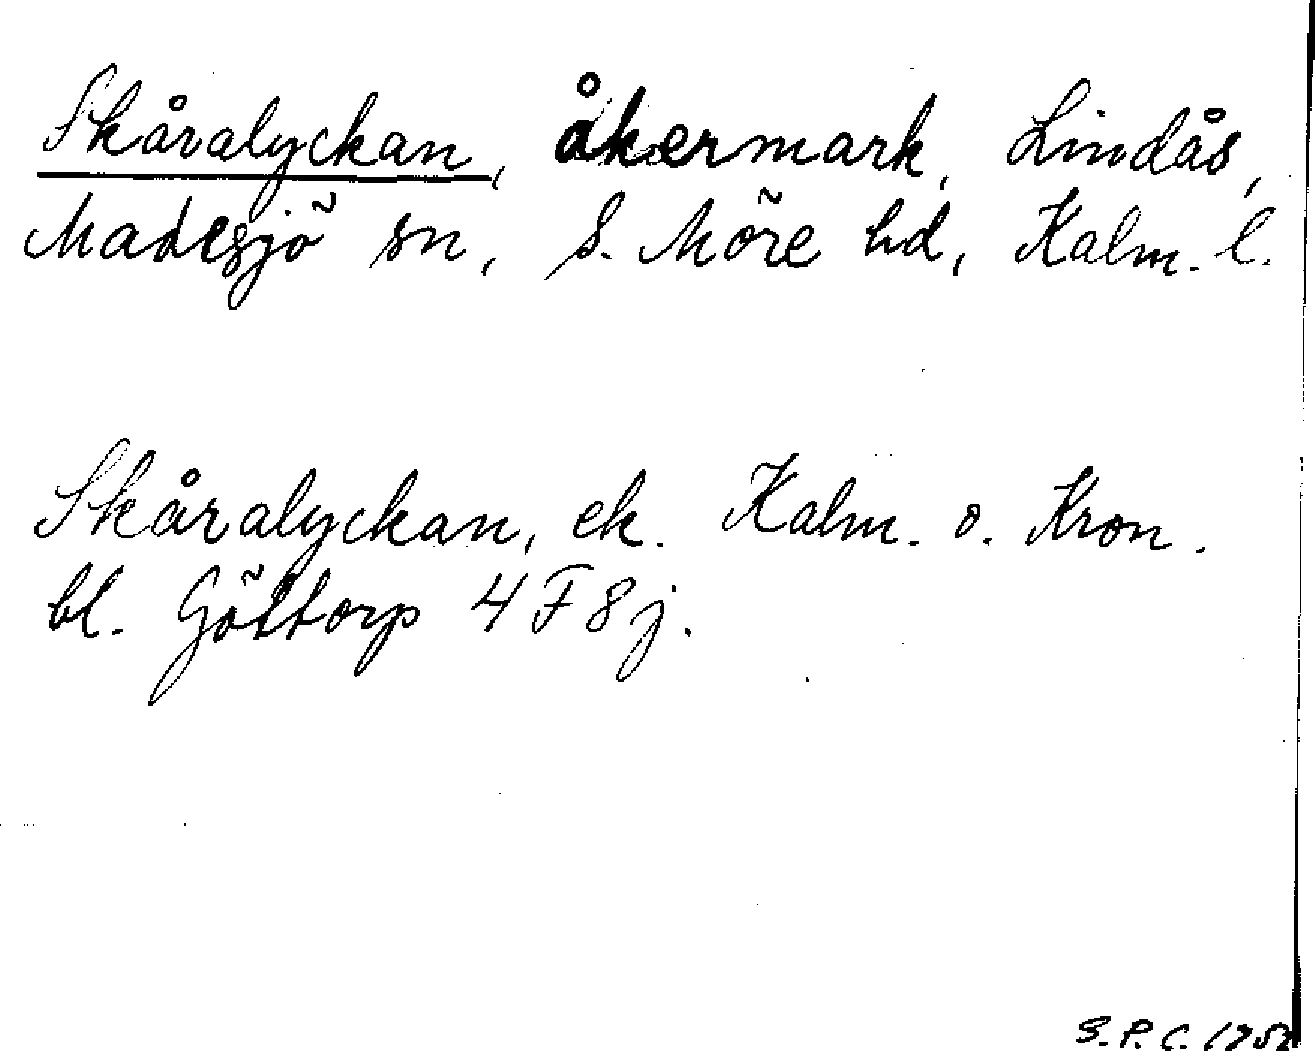 Skåralyckan, åkermark, Lindås,
Madesjö sn, S. Möre hd, Kalm. l.
Skåralyckan, ek. Kalm. o. Kron.
bl. Göttorp 4 F 8 j.
S.P.C.